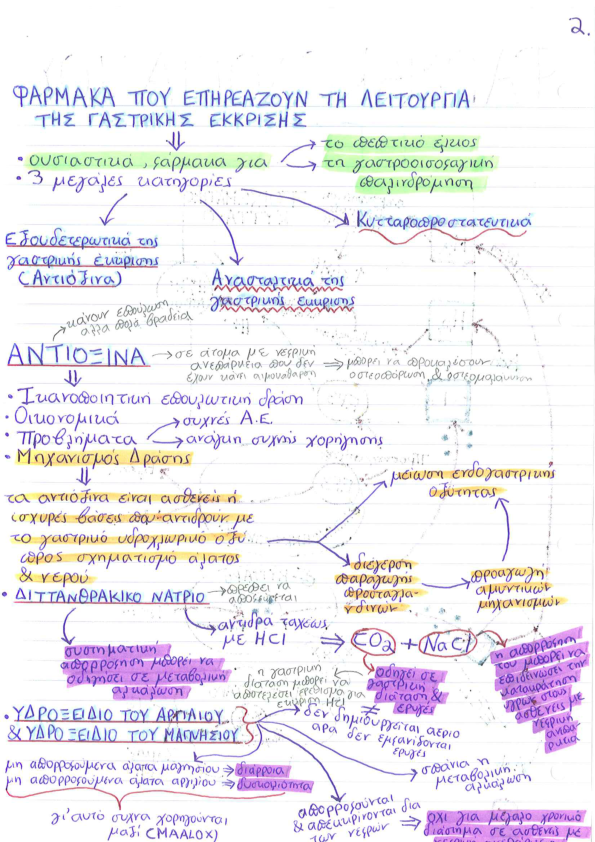 2.
ΦΑΡΜΑΚΑ ΠΟΥ ΕΠΗΡΕΑΖΟΥΝ ΤΗ ΛΕΙΤΟΥΡΓΙΑ
ΤΗΣ ΓΑΣΤΡΙΚΗΣ ΕΚΚΡΙΣΗΣ
⇓
• ουσιαστικά, φάρμακα για → το πεπτικό έλκος
→ τη γαστροοισοφαγική
παλινδρόμηση
• 3 μεγάλες κατηγορίες
Κυτταροπροστατευτικά
Εξουδετερωτικά της
γαστρικής έκκρισης
(Αντιόξινα)
Ανασταλτικά της
γαστρικής έκκρισης
κάνουν επούλωση
αλλά πολύ βραδεία
ΑΝΤΙΟΞΙΝΑ → σε άτομα με νεφρική
ανεπάρκεια που δεν
έχουν κάνει αιμοκάθαρση
⇒ μπορεί να προκαλέσουν
οστεοπόρωση & οστεομαλάκυνση
• Ικανοποιητική επουλωτική δράση
• Οικονομικά
• Προβλήματα → συχνές Α.Ε.
→ ανάγκη συχνής χορήγησης
• Μηχανισμός Δράσης
⇓
τα αντιόξινα είναι ασθενείς ή
ισχυρές βάσεις που αντιδρούν με
το γαστρικό υδροχλωρικό οξύ
προς σχηματισμό άλατος
& νερού
μείωση ενδογαστρικής
οξύτητας
διέγερση
παραγωγής
προσταγλαν-
δινών
προαγωγή
αμυντικών
μηχανισμών
• ΔΙΤΤΑΝΘΡΑΚΙΚΟ ΝΑΤΡΙΟ → πρέπει να
αποφεύγεται
αντιδρά ταχέως
με HCl ⇒ CO2 + NaCl
συστηματική
απορρόφηση μπορεί να
οδηγήσει σε μεταβολική
αλκάλωση
η γαστρική
διάταση μπορεί να
αποτελέσει ερέθισμα για
έκκριση HCl
οδηγεί σε
γαστρική
διάταση &
ερυγές
η απορρόφηση
του μπορεί να
επιδεινώσει την
κατακράτηση
υγρών στους
ασθενείς με
νεφρική
ανεπά
ρκεια
• ΥΔΡΟΞΕΙΔΙΟ ΤΟΥ ΑΡΓΙΛΙΟΥ
& ΥΔΡΟΞΕΙΔΙΟ ΤΟΥ ΜΑΓΝΗΣΙΟΥ
≠
δεν δημιουργείται αέριο
άρα δεν εμφανίζονται
ερυγές
σπάνια η
μεταβολική
αλκάλωση
μη απορροφούμενα άλατα μαγνησίου ⇒ διάρροια
μη απορροφούμενα άλατα αργιλίου ⇒ δυσκοιλιότητα
γι' αυτό συχνά χορηγούνται
μαζί (MAALOX)
απορροφούνται
& απεκκρίνονται δια
των νεφρών
⇒ όχι για μεγάλο χρονικό
διάστημα σε ασθενείς με